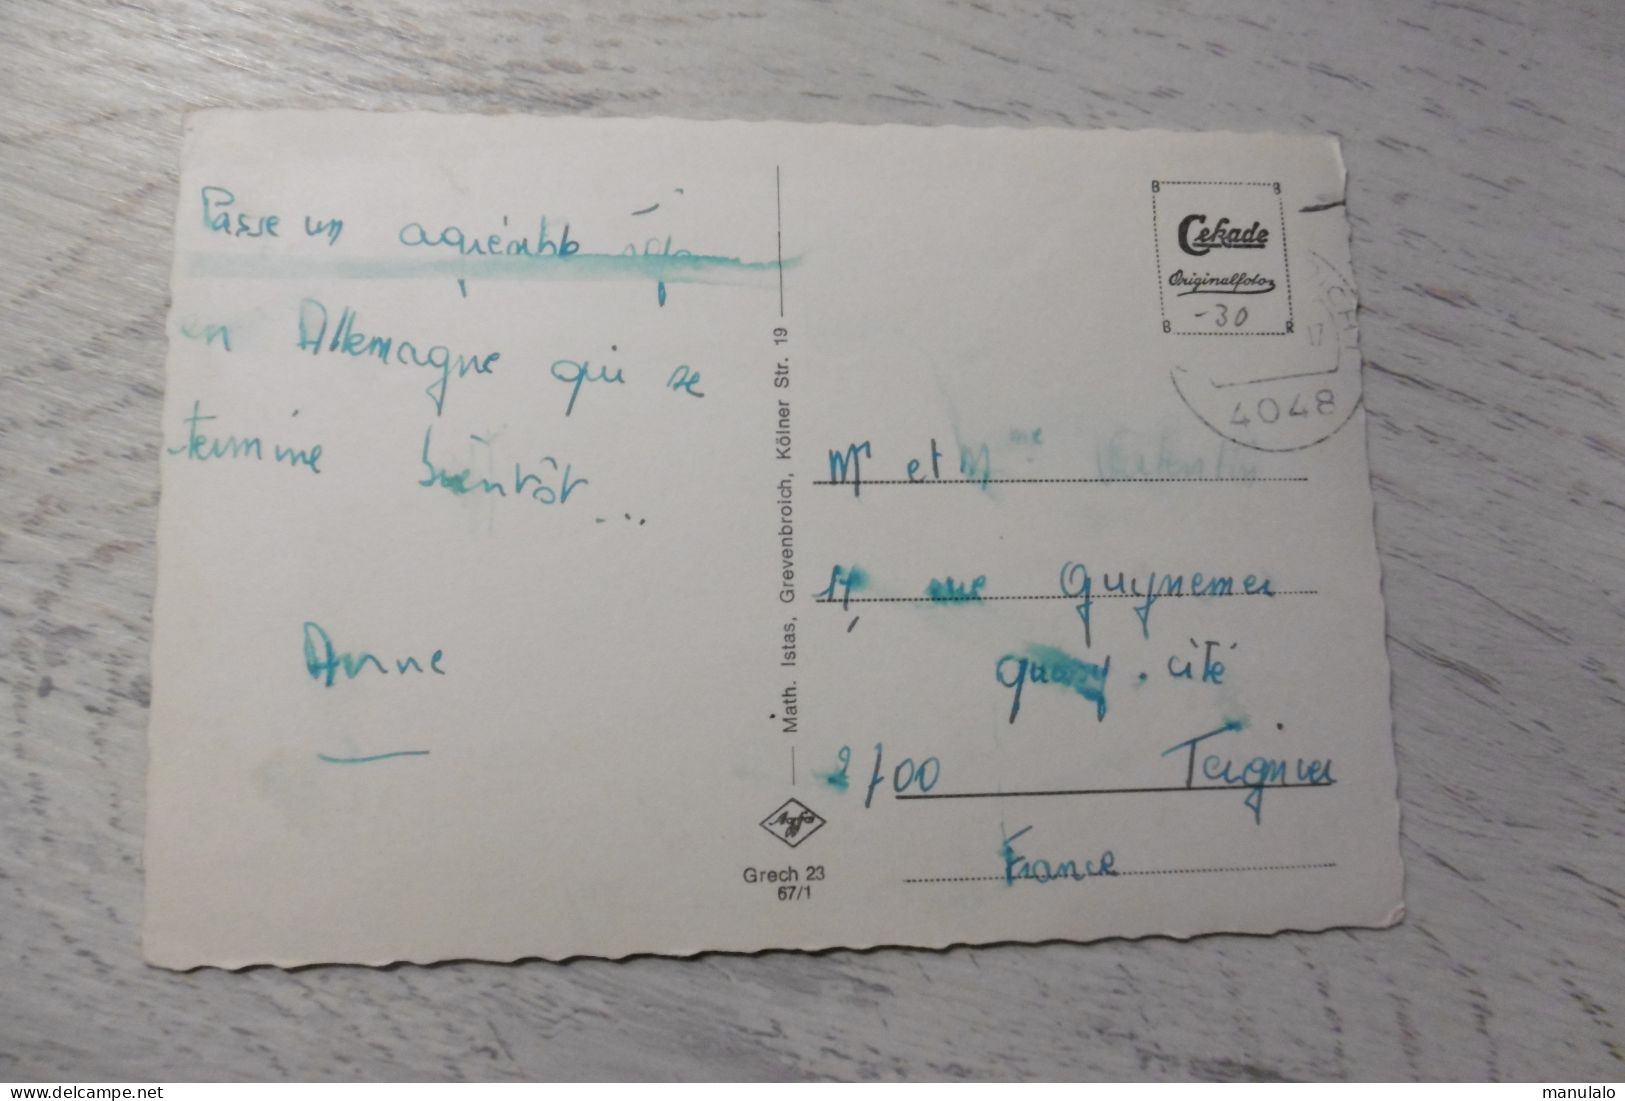 Passe un agréable séjour
en Allemagne qui se
termine bientôt...
Anne
Math. Istas, Grevenbroich, Kölner Str. 19
Agfa
Grech 23
67/1
B B
Cekade
Originalfoto
-30
B R
17
4048
Mr et Mme
rue Guynemer
Quessy. cité
2100 Tergnier
France
manulalo